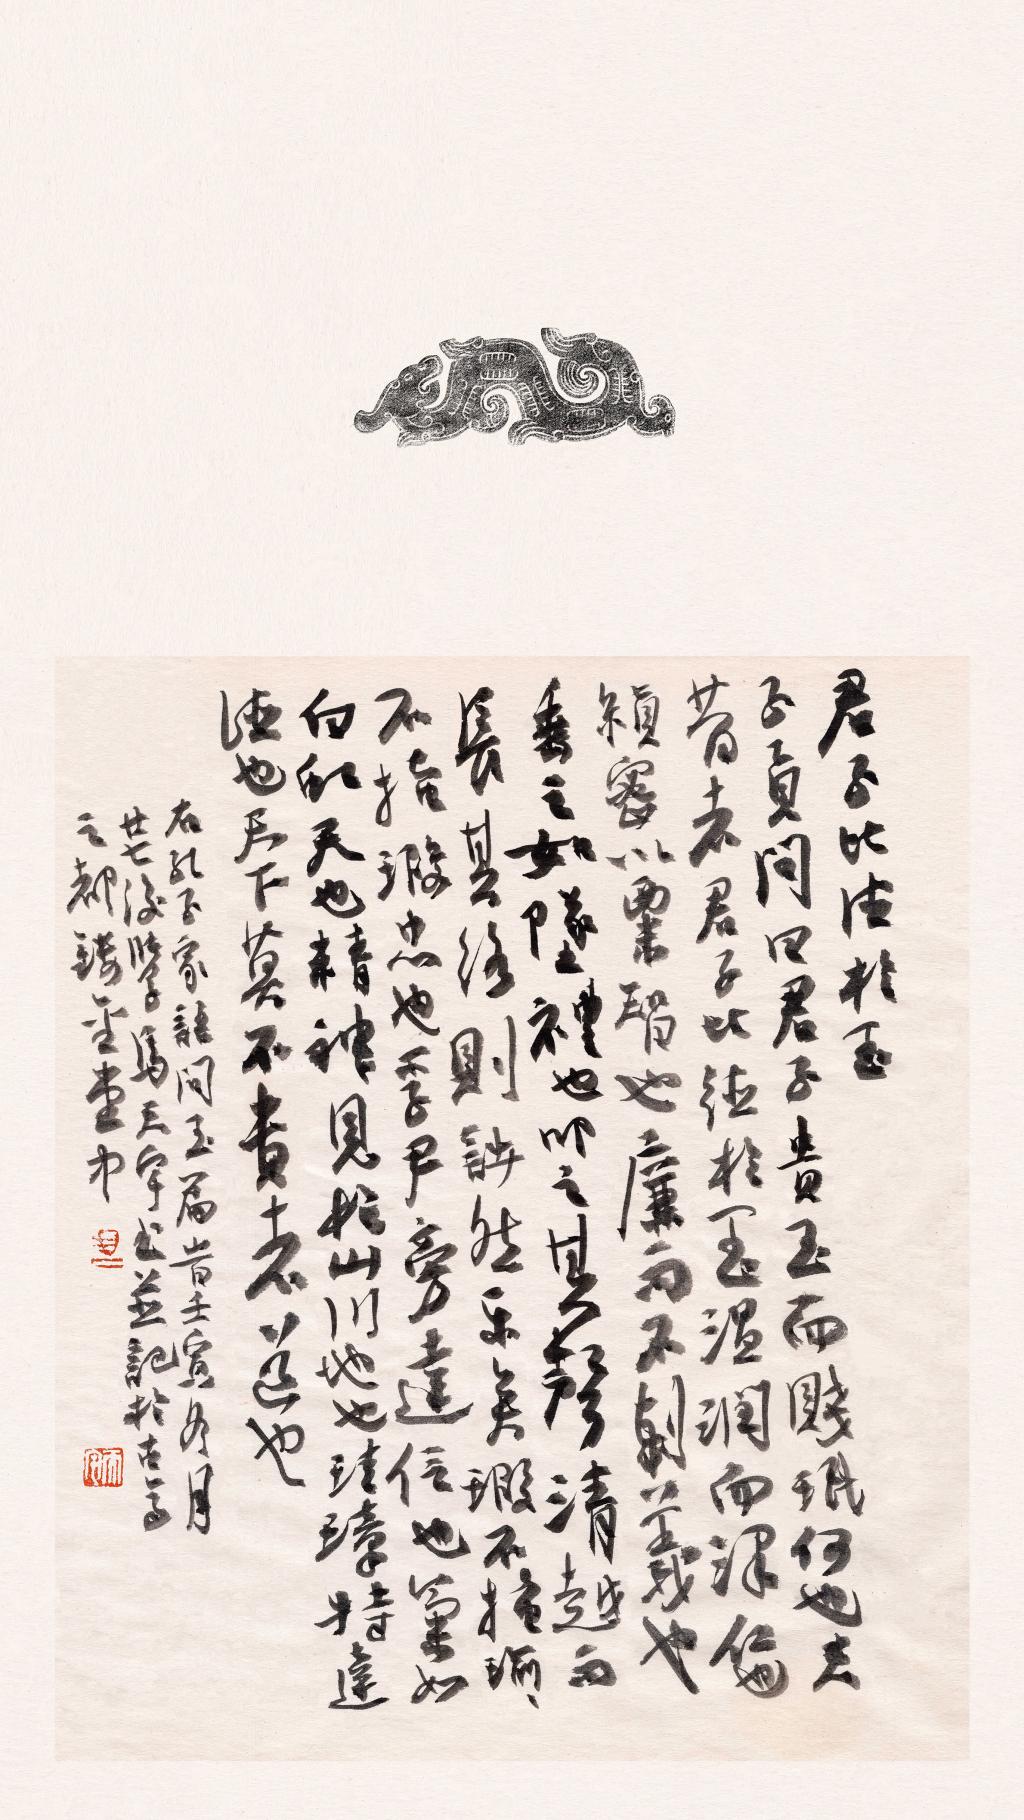 君子比德於玉
子貢問曰君子貴玉而賤珉何也夫
昔者君子比德於玉溫潤而澤仁也
縝密以栗智也廉而不劌義也
垂之如墜禮也叩之其聲清越而
長其終則詘然樂矣瑕不掩瑜
不掩瑕忠也孚尹旁達信也氣如
白虹天也精神見於山川地也珪璋特達
德也天下莫不貴者道也
右孔子家語問玉篇 壬寅 月
廿七 後學馬天宇書並記於古
之都 堂中